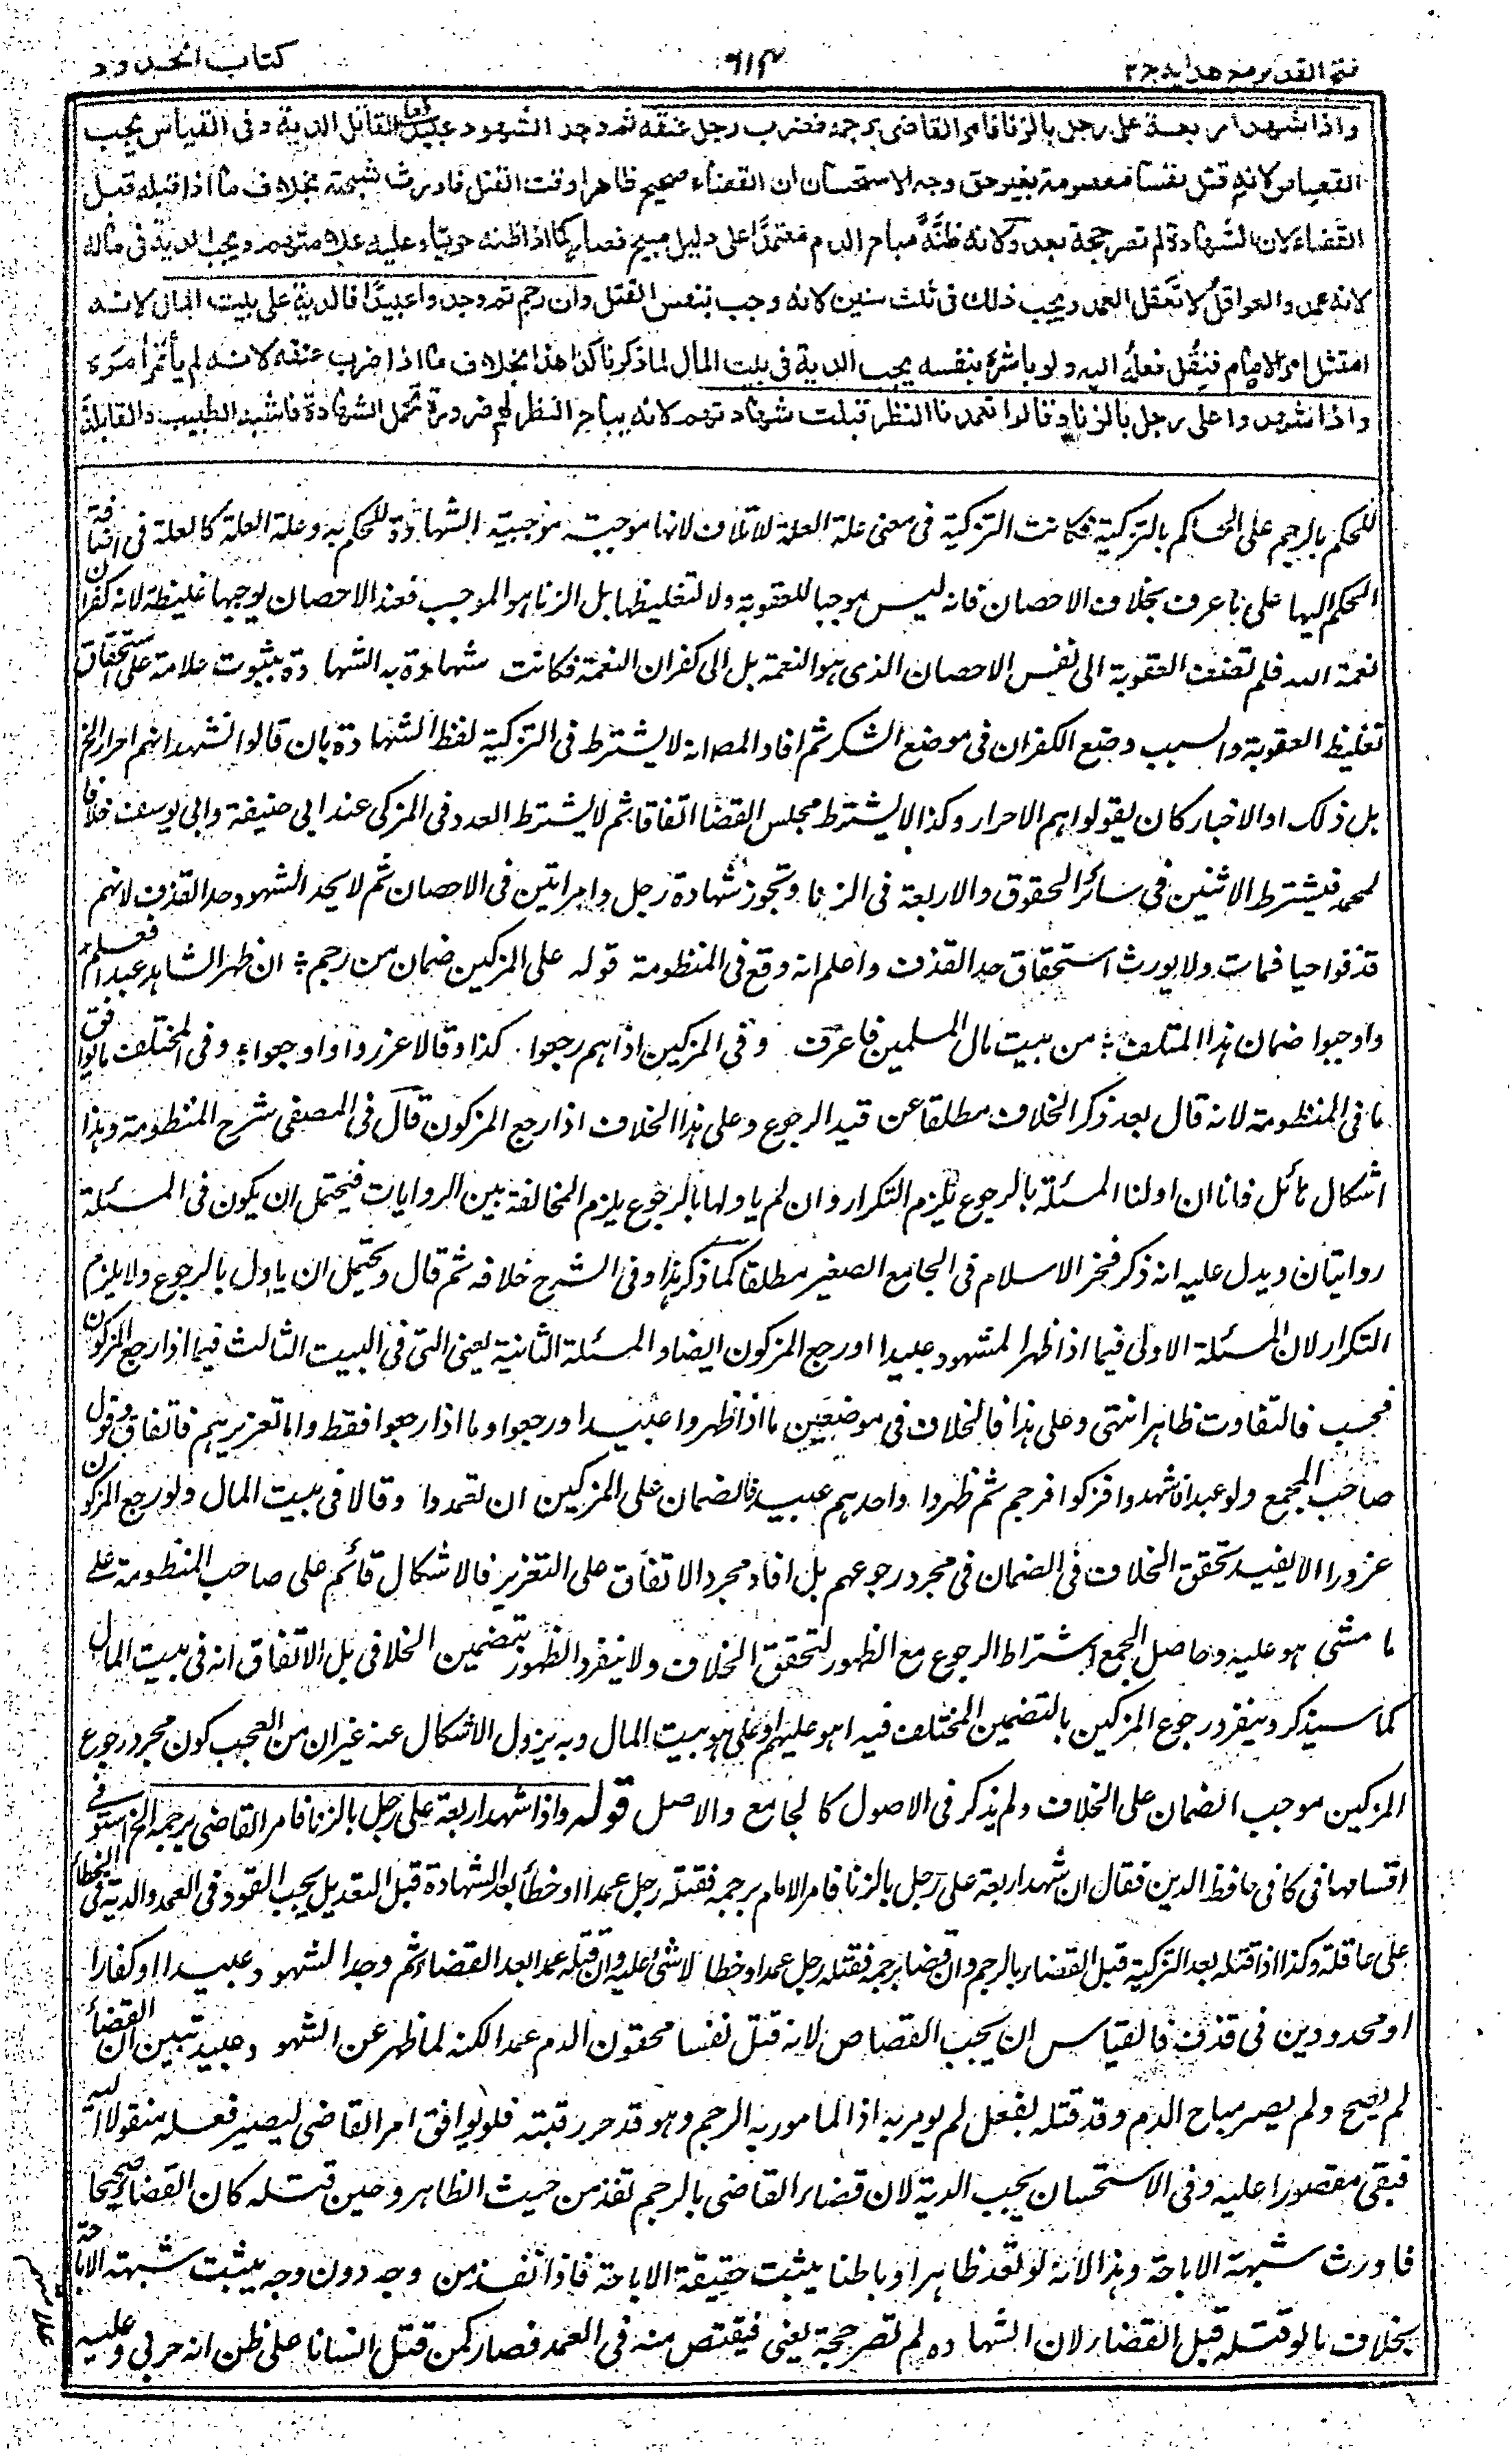 فتح القدير مع هدايه ج ٢
٦١٤
كتاب الحدود
واذا شهد اربعة على رجل بالزنا فامر القاضى برجمه فضرب رجل عنقه ثم وجد الشهود عبيدا فعلى القاتل الدية وفى القياس يجب
القصاص لانه قتل نفسا معصومة بغير حق وجه الاستحسان ان القضاء صحيح ظاهرا وقت القتل فاورث شبهة بخلاف ما اذا قتله قبل
القضاء لان الشهادة لم تصر حجة بعد ولانه ظنه مباح الدم معتمدا على دليل مبيح فصار كما اذا ظنه حربيا وعليه علامتهم ويجب الدية فى ماله
لانه عمد والعواقل لا تعقل العمد ويجب ذلك فى ثلث سنين لانه وجب بنفس القتل وان رجم ثم وجدوا عبيدا فالدية على بيت المال لانه
امتثل امر الامام فنقل فعله اليه ولو باشره بنفسه يجب الدية فى بيت المال لما ذكرنا كذا هذا بخلاف ما اذا ضرب عنقه لانه لم يأتمر امره
واذا شهدوا على رجل بالزنا وقالوا تعمدنا النظر قبلت شهادتهم لانه يباح النظر لهم ضرورة تحمل الشهادة فاشبه الطبيب والقابلة
للحكم بالرجم على الحاكم بالتزكية فكانت التزكية فى معنى علة العلة للاتلاف لانها موجبة موجبية الشهادة للحكم به وعلة العلة كالعلة فى اضافة
الحكم اليها على ما عرف بخلاف الاحصان فانه ليس موجبا للعقوبة ولا لتغليظها بل الزنا هو الموجب فعند الاحصان يوجبها غليظة لانه كفران
نعمة الله فلم تضف العقوبة الى نفس الاحصان الذى هو النعمة بل الى كفران النعمة فكانت شهادة به الشهادة بثبوت علامة على استحقاق
تغليظ العقوبة والسبب وضع الكفران فى موضع الشكر ثم افاد المصـ انه لا يشترط فى التزكية لفظ الشهادة بان قالوا نشهد انهم احرار الخ
بل ذلك او الاخبار كان يقولوا هم الاحرار وكذا لا يشترط مجلس القضا اتفاقا ثم لا يشترط العدد فى المزكى عند ابى حنيفة وابى يوسف خلافا
لمحمد فيشترط الاثنين فى سائر الحقوق والاربعة فى الزنا وتجوز شهادة رجل وامراتين فى الاحصان ثم لا يحد الشهود حد القذف لانهم
قذفوا حيا فمات ولا يورث استحقاق حد القذف واعلم انه وقع فى المنظومة قوله على المزكين ضمان من رجم ؛ ان ظهر الشاهد عبدا فعلم
واوجبوا ضمان هذا المتلف ؛ من بيت مال المسلمين فاعرف وفى المزكين اذا هم رجعوا كذا وقالا عزروا واوجعوا ؛ وفى المختلف ما يوافق
ما فى المنظومة لانه قال بعد ذكر الخلاف مطلقا عن قيد الرجوع وعلى هذا الخلاف اذا رجع المزكون قال فى المصفى شرح المنظومة وهذا
اشكال هائل فانا ان اولنا المسئلة بالرجوع يلزم التكرار وان لم ياولها بالرجوع يلزم المخالفة بين الروايات فيحتمل ان يكون فى المسئلة
روايتان ويدل عليه انه ذكر فخر الاسلام فى الجامع الصغير مطلقا كما ذكر هذا وفى الشرح خلافه ثم قال ويحتمل ان ياول بالرجوع ولا يلزم
التكرار لان المسئلة الاولى فيما اذا ظهر المشهود عبيدا اورجع المزكون ايضا والمسئلة الثانية يعنى التى فى البيت الثالث فيما اذا رجع المزكون
فحسب فالتفاوت ظاهر انتهى وعلى هذا فالخلاف فى موضعين ما اذا ظهروا عبيدا ورجعوا وما اذا رجعوا فقط واما تعزيرهم فاتفاق وقول
صاحب المجمع ولو عبدا شهدوا فزكوا فرجم ثم ظهروا واحدهم عبيدا فالضمان على المزكين ان تعمدوا وقالا فى بيت المال ولو رجع المزكون
عزروا الا يفيد تحقق الخلاف فى الضمان فى مجرد رجوعهم بل افاد مجرد الاتفاق على التعزير فالاشكال قائم على صاحب المنظومة على
ما مشى هو عليه وحاصل المجمع اشتراط الرجوع مع الظهور لتحقق الخلاف ولا ينفرد الظهور بتضمين الخلافى بل الاتفاق انه فى بيت المال
كما سيذكر وينفرد رجوع المزكين بالتضمين المختلف فيه اهو عليهم او على هو بيت المال وبه يزول الاشكال عنه غير ان من العجب كون مجرد رجوع
المزكين موجب الضمان على الخلاف ولم يذكر فى الاصول كالجامع والاصل قوله واذا شهد اربعة على رجل بالزنا فامر القاضى برجمه الخ استوفى
اقسامها فى كافى حافظ الدين فقال ان شهد اربعة على رجل بالزنا فامر الامام برجمه فقتله رجل عمدا او خطأ بعد الشهادة قبل التعديل يجب القود فى العمد والدية فى الخطأ
على عاقلته وكذا اذا قتله بعد التزكية قبل القضاء بالرجم وان قضا برجمه فقتله رجل عمدا وخطا لا شئ عليه وان قتله عمدا بعد القضاء ثم وجد الشهود عبيدا او كفارا
او محدودين فى قذف فالقياس ان يجب القصاص لانه قتل نفسا محقون الدم عمدا لكنه لما ظهر عن الشهود عبيد تبين ان القضاء
لم يصح ولم يصر مباح الدم وقد قتله بفعل لم يومر به اذ المامور به الرجم وهو قد حز رقبته فلو يوافق امر القاضى ليصير فعله منقولا اليه
فبقى مقصورا عليه وفى الاستحسان يجب الدية لان قضاء القاضى بالرجم نفذ من حيث الظاهر وحين قتله كان القضاء صحيحا
فاورث شبهة الاباحة وهذا لانه لو نفذ ظاهرا وباطنا يثبت حقيقة الاباحة فاذا نفذ من وجه دون وجه يثبت شبهة الاباحة
بخلاف ما لو قتله قبل القضاء لان الشهاده لم تصر حجة يعنى فيقتص منه فى العمد فصار كمن قتل انسانا على ظن انه حربى وعليه
علامتهم